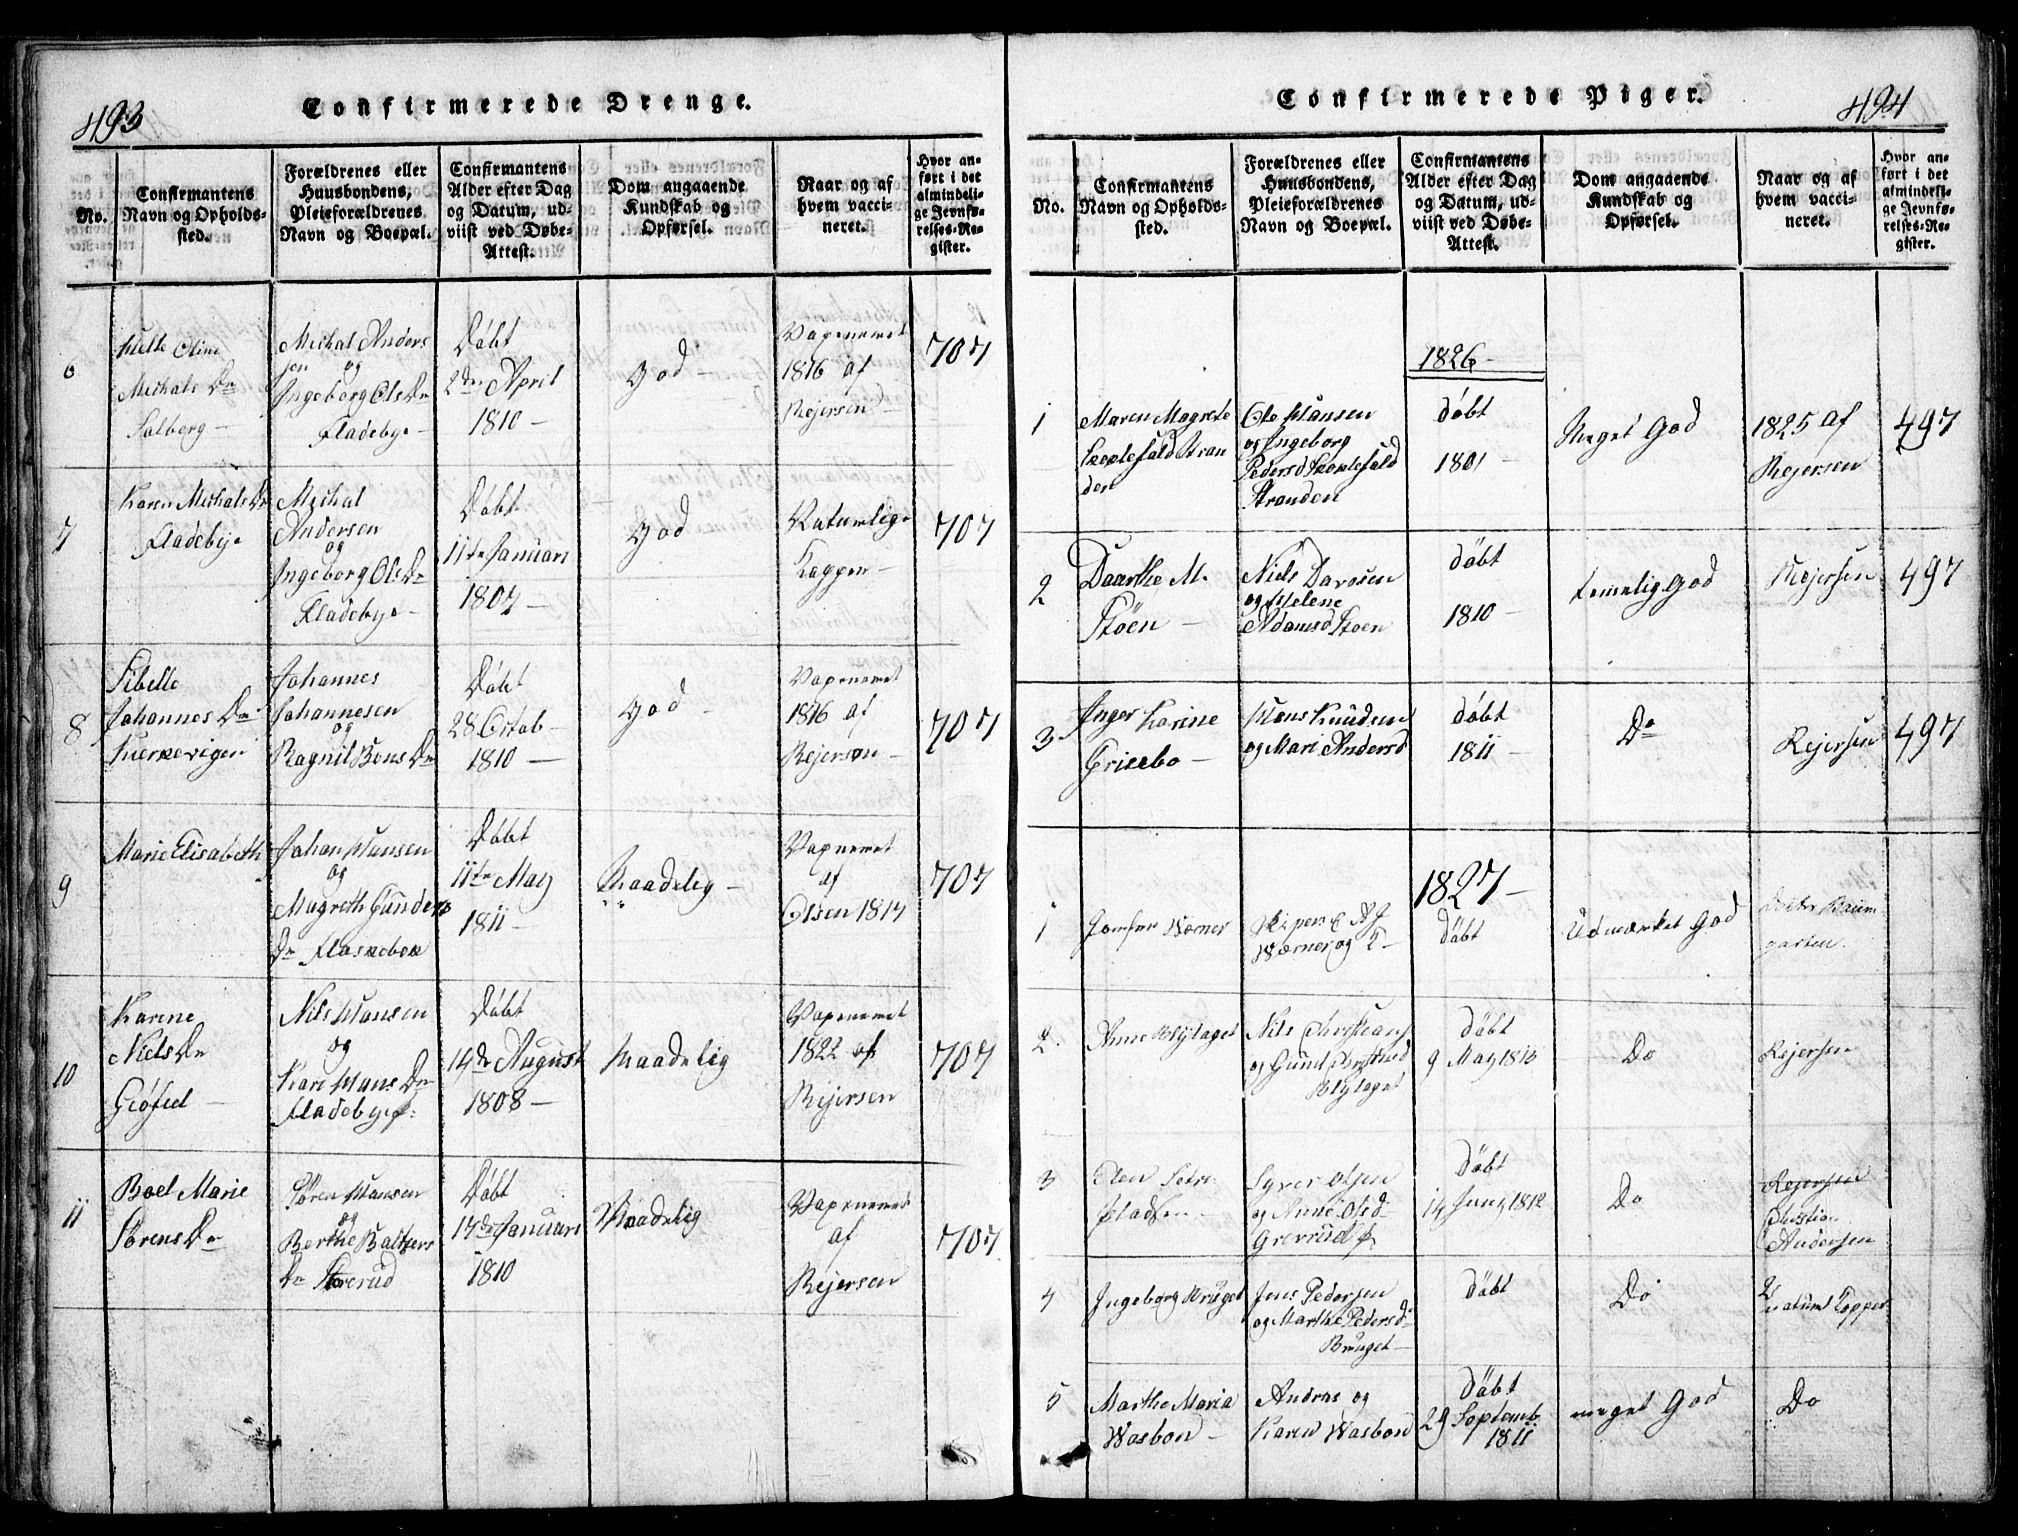 493
Confirmerede Drenge.
No.
Confirmantens
Navn og Opholds-
sted.
Forældrenes eller
Huusbondens,
Pleieforældrenes
Navn og Boepæl.
Confirmantens
Alder efter Dag
og Datum, ud-
viist ved Døbe-
Attest.
Dom angaaende
Kundskab og
Opførsel.
Naar og af
hvem vacci-
neret.
Hvor an-
ført i det
almindeli-
ge Jevnfø-
relses-Re-
gister.
6
Helle Oline
Michals Dr
Solberg
Michal Anders
sen og
Ingeborg Ols Dr
Fladebye
Døbt
2den April
1810
God
Vaxeneret
1816 af
Rejersen
707
7
Karen Michals Dr
Fladebye
Michal
Andersen
og
Ingeborg Ols Dr
Fladebye
Døbt
11te Januari
1807
God
Naturlige
Kopper
707
8
Sibelle
Johannes Dr
Johannes
Johannesen
og
Ragnil Bens Dr
Døbt
28 Octob
1810
God
Vaxeneret
1816 af
Rejersen
707
9
Marie Elisabeth
Johan Hansen
og
Magreth Gunders
Dr
Døbt
11te May
1811
Maadelig
Vaxneret
af
Olsen 1814
707
10
Karine
Niels Dr
Nils Hansen
og
Kari Hans Dr
Fladebye
Døbt
14de August
1808
Maadelig
Vaxeneret
1822 af
Rejersen
707
11
Boel Marie
Sørens Dr
Søren Hansen
og
Berthe Baltzers
Dr
Døbt
14de Januari
1810
Maadelig
Vaxeneret
af
Rejersen
707
Confirmerede Piger.
494
No.
Confirmantens
Navn og Opholds-
sted.
Forældrenes eller
Huusbondens,
Pleieforældrenes
Navn og Boepæl.
Confirmantens
Alder efter Dag
og Datum, ud-
viist ved Døbe-
Attest.
Dom angaaende
Kundskab og
Opførsel.
Naar og af
hvem vacci-
neret.
Hvor an-
ført i det
almindeli-
ge Jevnfø-
relses-Re-
gister.
1826
1
Maren Magrete
Ole Hansen
og Ingeborg
Stranden
døbt
1801
Meget God
1825 af
Rejersen
497
2
Daarthe M.
Støen
Niels
og Helene
Adamsd Støen
døbt
1810
temelig God
Rejersen
497
3
Inger Karine
Grisebo
Hans Knudsen
og Mari Andersd
døbt
1811
Do
Rejersen
497
1827
1
Jomfru Werner
Werner og
døbt
Udmærket God
2
Anne Blylaget
Nils Christians
og
Blylaget
døbt
9 May 1813
Do
Rejersen
3
Elen
Pladsen
Syver Olsen
og Anne Olsd
døbt
14 Juny 1812
Do
Rejersen
Christian
Andersen
4
Ingeborg Bruget
Jens Pedersen
og Marthe Pedersd
Bruget
døbt
Do
Naturl Kopper
5
Marthe Maria
Wasbon
Andras og
Karen Wasbon
døbt
29 Septemb.
1811
meget God
Do